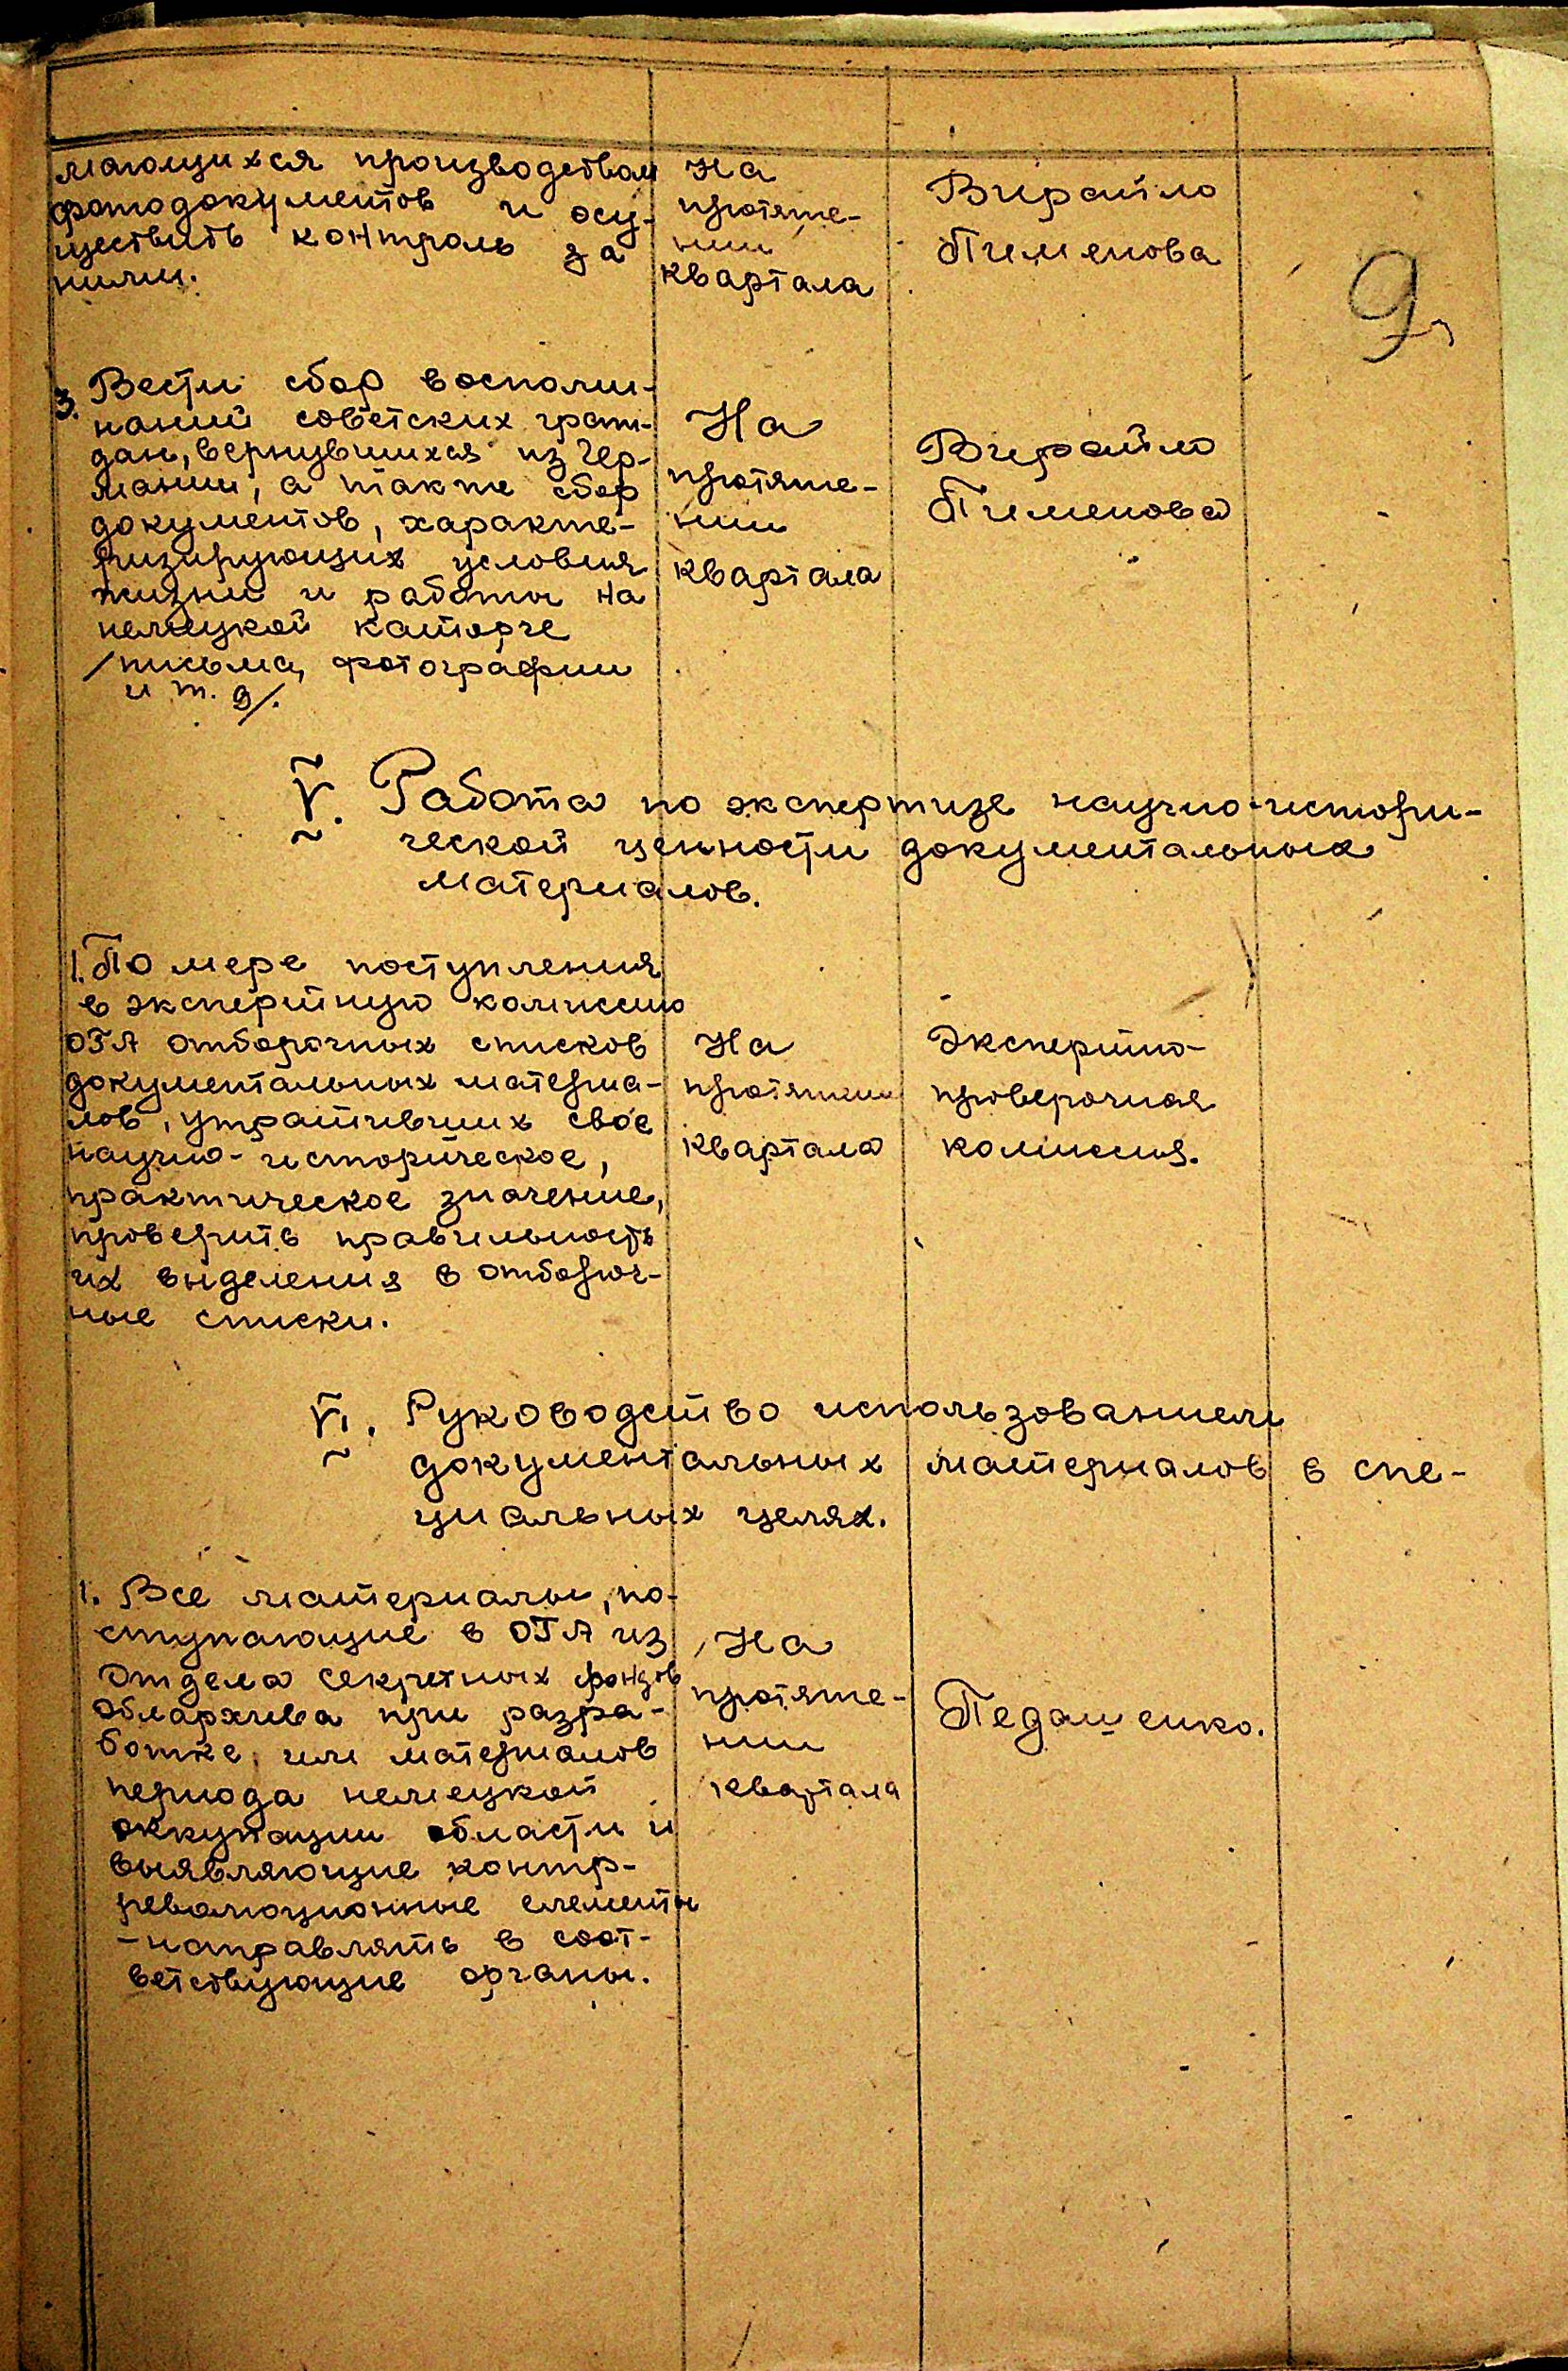 мающихся производством
фотодокументов и осу-
ществить контроль за
ними.
На
протяже-
нии
квартала
Вирайло
Пименова
9
3. Вести сбор воспоми-
наний советских граж-
дан, вернувшихся из Гер-
мании, а также сбор
документов, характе-
ризирующих условия
жизни и работы на
немецкой каторге
/письма, фотографии
и т. д/.
На
протяже-
нии
квартала
Вирайло
Пименова
V. Работа по экспертизе научно-истори-
ческой ценности документальных
материалов.
1. По мере поступления
в экспертную комиссию
ОГА отборочных списков
документальных материа-
лов, утративших своё
научно-историческое,
практическое значение,
проверить правильность
их выделения в отбороч-
ные списки.
На
протяжении
квартала
Экспертно-
проверочная
комиссия.
VI. Руководство использованием
документальных материалов в спе-
циальных целях.
1. Все материалы, по-
ступающие в ОГА из
Отдела Секретных фондов
Облархива при разра-
ботке, или материалов
периода немецкой
оккупации области и
выявляющие контр-
революционные елементы
-направлять в соот-
ветствующие органы.
На
протяже-
нии
квартала
Педашенко.